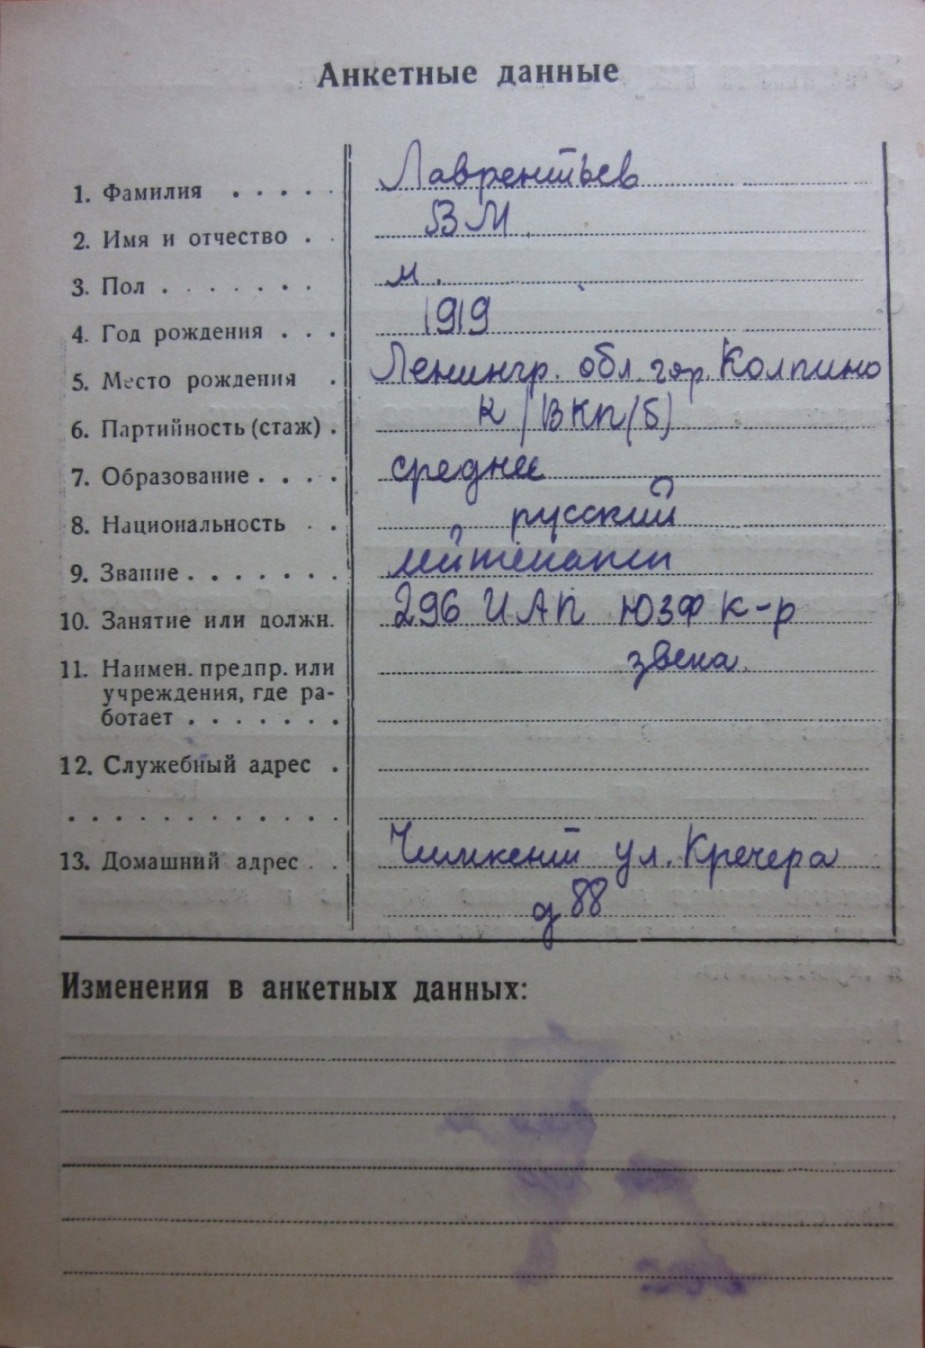 Анкетные данные
1. Фамилия . . . . . Лаврентьев
2. Имя и отчество . В М
3. Пол . . . . . . . м.
4. Год рождения . . . 1919
5. Место рождения . Ленингр. обл. гор. Колпино
6. Партийность (стаж) . К/ВКП(б)
7. Образование . . . . среднее
8. Национальность . . русский
9. Звание . . . . . . . лейтенант
10. Занятие или должн. 296 ИАП ЮЗФ к-р
звена
11. Наимен. предпр. или
учреждения, где ра-
ботает . . . . . . .
12. Служебный адрес .
13. Домашний адрес . . Чимкент ул. Кречера
д 88
Изменения в анкетных данных: